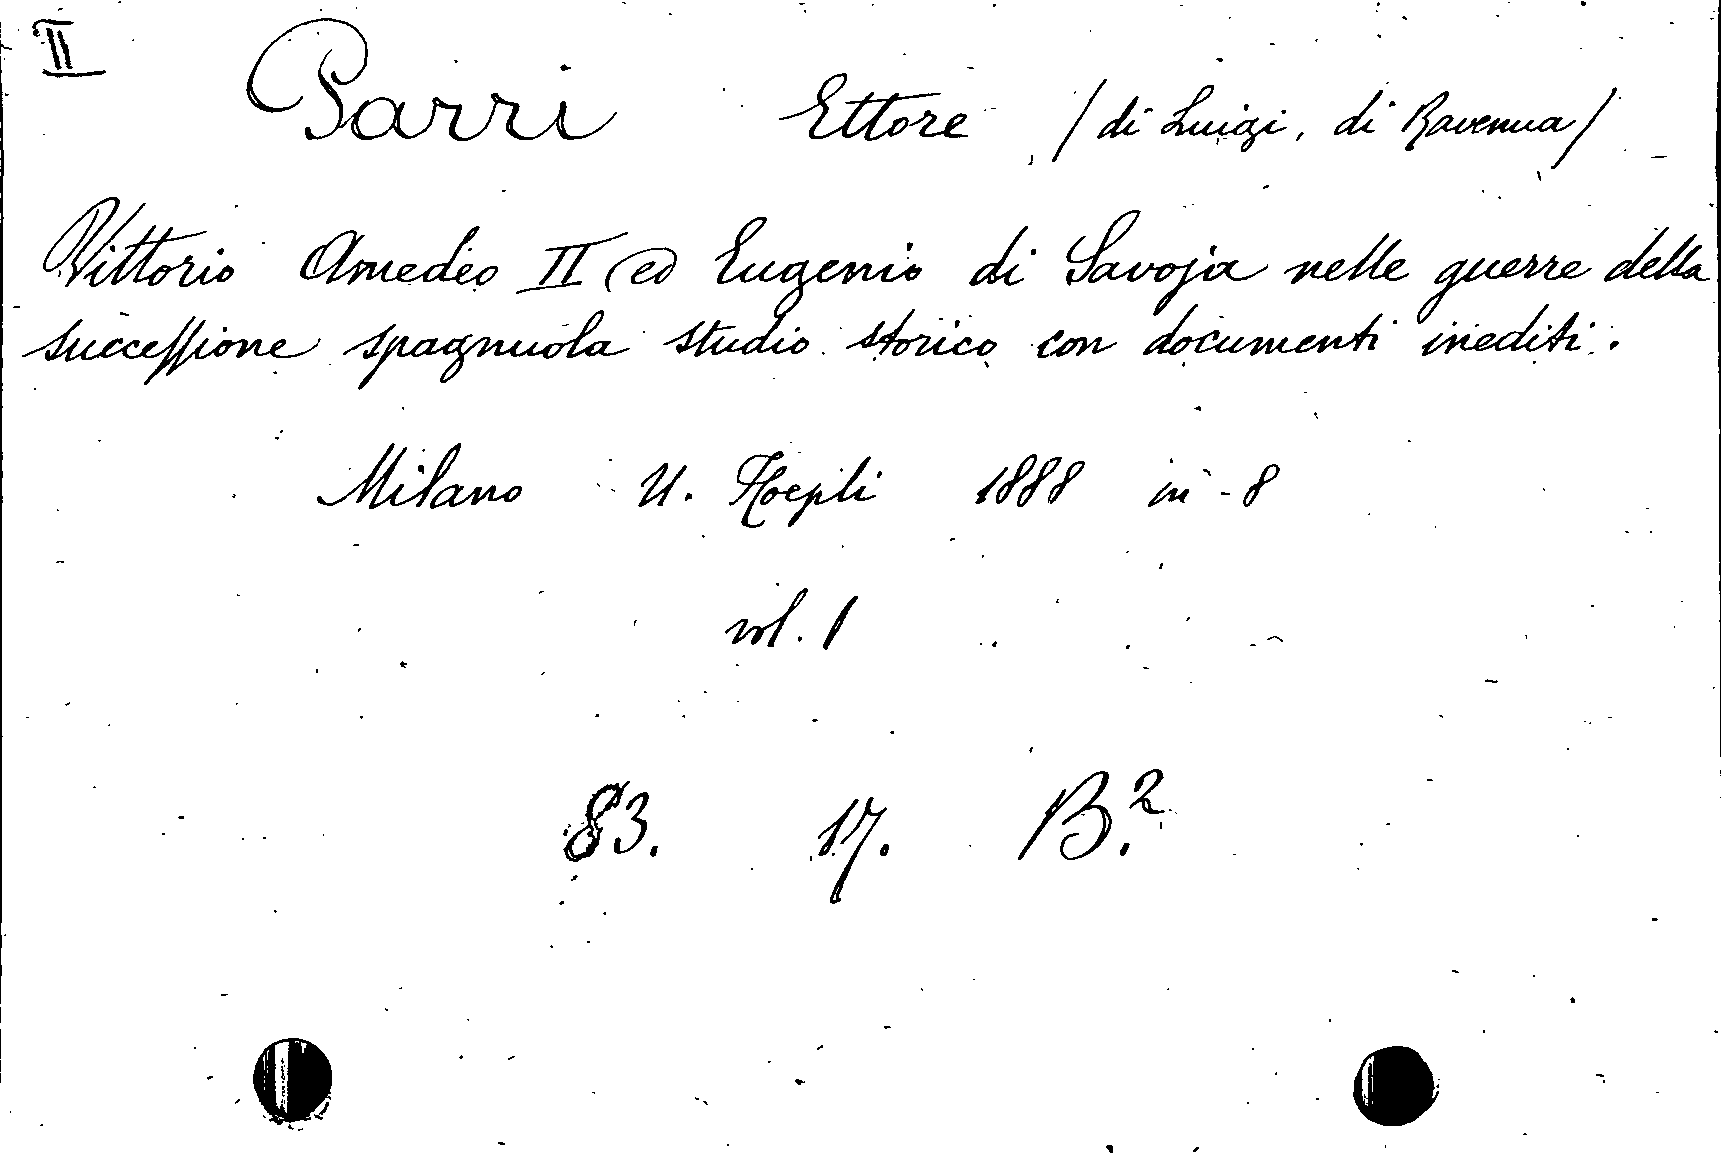 II
Parri Ettore /di Luigi, di Ravenna/
Vittorio Amedeo II ed Eugenio di Savoja nelle guerre della
successione spagnuola studio storico con documenti inediti.
Milano U. Hoepli 1888 in-8
vol. 1
83. 17. B.²